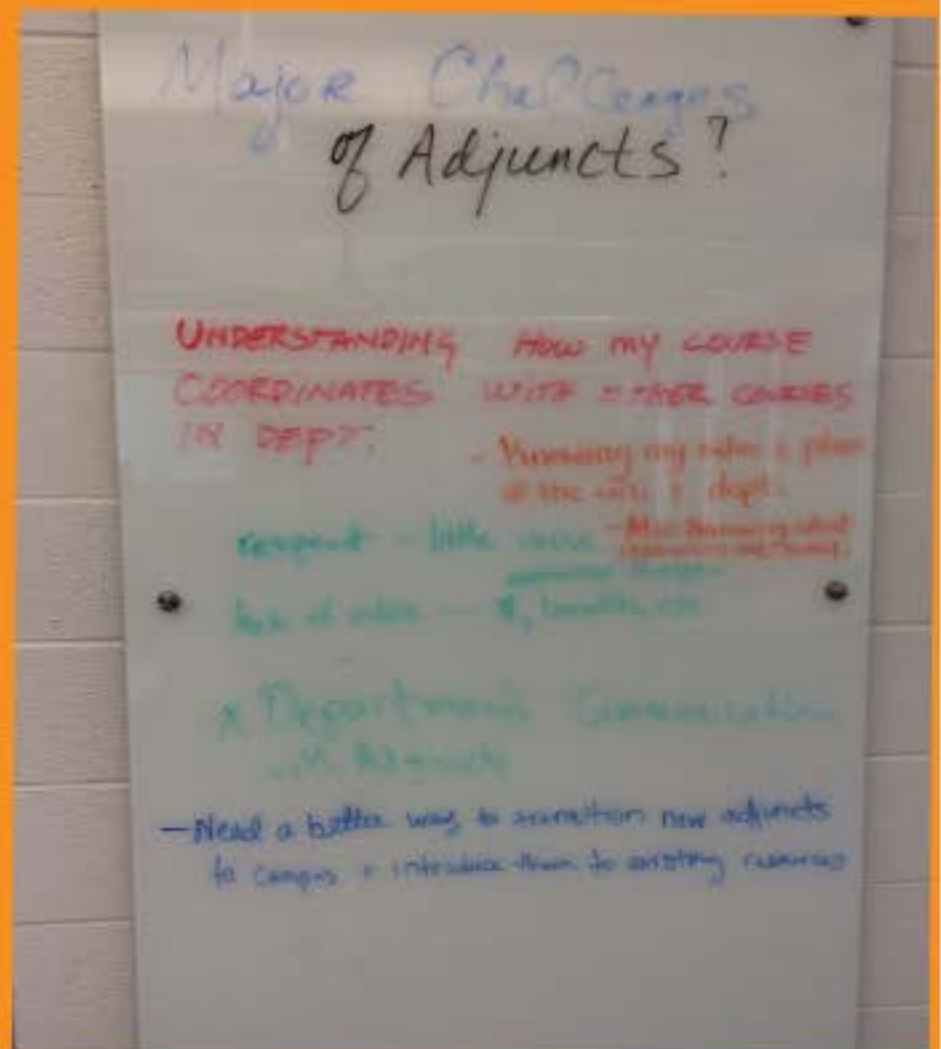 Major Challenges
of Adjuncts?
UNDERSTANDING HOW MY COURSE
COORDINATES WITH OTHER COURSES
IN DEPT.
- Knowing my &
dept.
respect - little
lack of — $, benefits, etc
x Department Communication
w/ Adjuncts
- Need a better way to transition new adjuncts
to campus + introduce them to existing resources